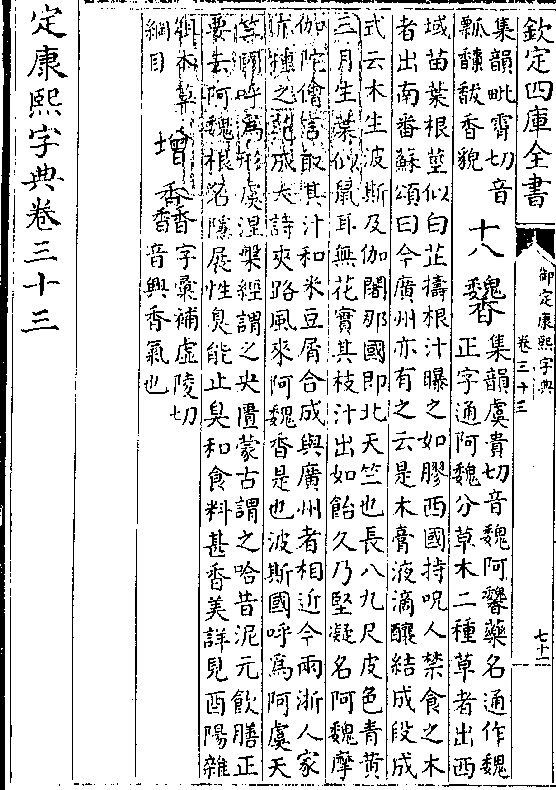 欽定四庫全書
御定康熙字典
卷三十三
七十二
集韻毗霄切音
瓢馛香貌
十八
集韻虞貴切音魏阿藥名通作魏
正字通阿魏分草木二種草者出西
域苗葉根莖似白芷擣根汁曝之如膠西國持呪人禁食之木
者出南番蘇頌曰今廣州亦有之云是木膏液滴釀結成段成
式云木生波斯及伽闍那國即北天竺也長八九尺皮色青黃
三月生葉似鼠耳無花實其枝汁出如飴久乃堅凝名阿魏摩
伽陀僧言取其汁和米豆屑合成與廣州者相近今兩浙人家
亦種之范成大詩夾路風來阿魏香是也波斯國呼爲阿虞天
竺國呼爲形虞涅槃經謂之央匱蒙古謂之哈昔泥元飲膳正
要云阿魏根名隱展性臭能止臭和食料甚香美詳見酉陽雜
俎本草
綱目
增
字彙補虛陵切
音興香氣也
定康熙字典卷三十三